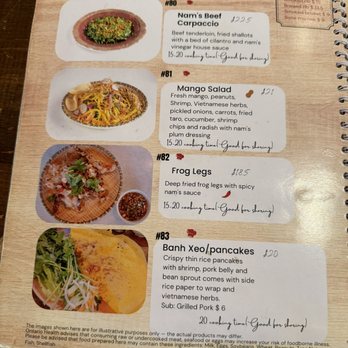 #80
Nam's Beef
Carpaccio
Beef tenderloin, fried shallots
with a bed of cilantro and nam's
vinegar house sauce
15-20 cooking time (Good for sharing)
#81
Mango Salad
$21
Fresh mango, peanuts,
Shrimp, Vietnamese herbs,
pickled onions, carrots, fried
taro, cucumber, shrimp
chips and radish with nam's
plum dressing
15-20 cooking time (Good for sharing)
#82
Frog Legs
Deep fried frog legs with spicy
nam's sauce
15-20 cooking time (Good for sharing)
#83
Banh Xeo/pancakes
$20
Crispy thin rice pancakes
with shrimp, pork belly and
bean sprout comes with side
rice paper to wrap and
vietnamese herbs.
Sub: Grilled Pork $ 6
20 cooking time (Good for sharing)
The images shown here are for illustrative purposes only — the actual products may differ.
Ontario Health advises that consuming raw or undercooked meat, seafood or eggs may increase your risk of foodborne illness.
Please be advised that food prepared here may contain these ingredients: Milk, Eggs,